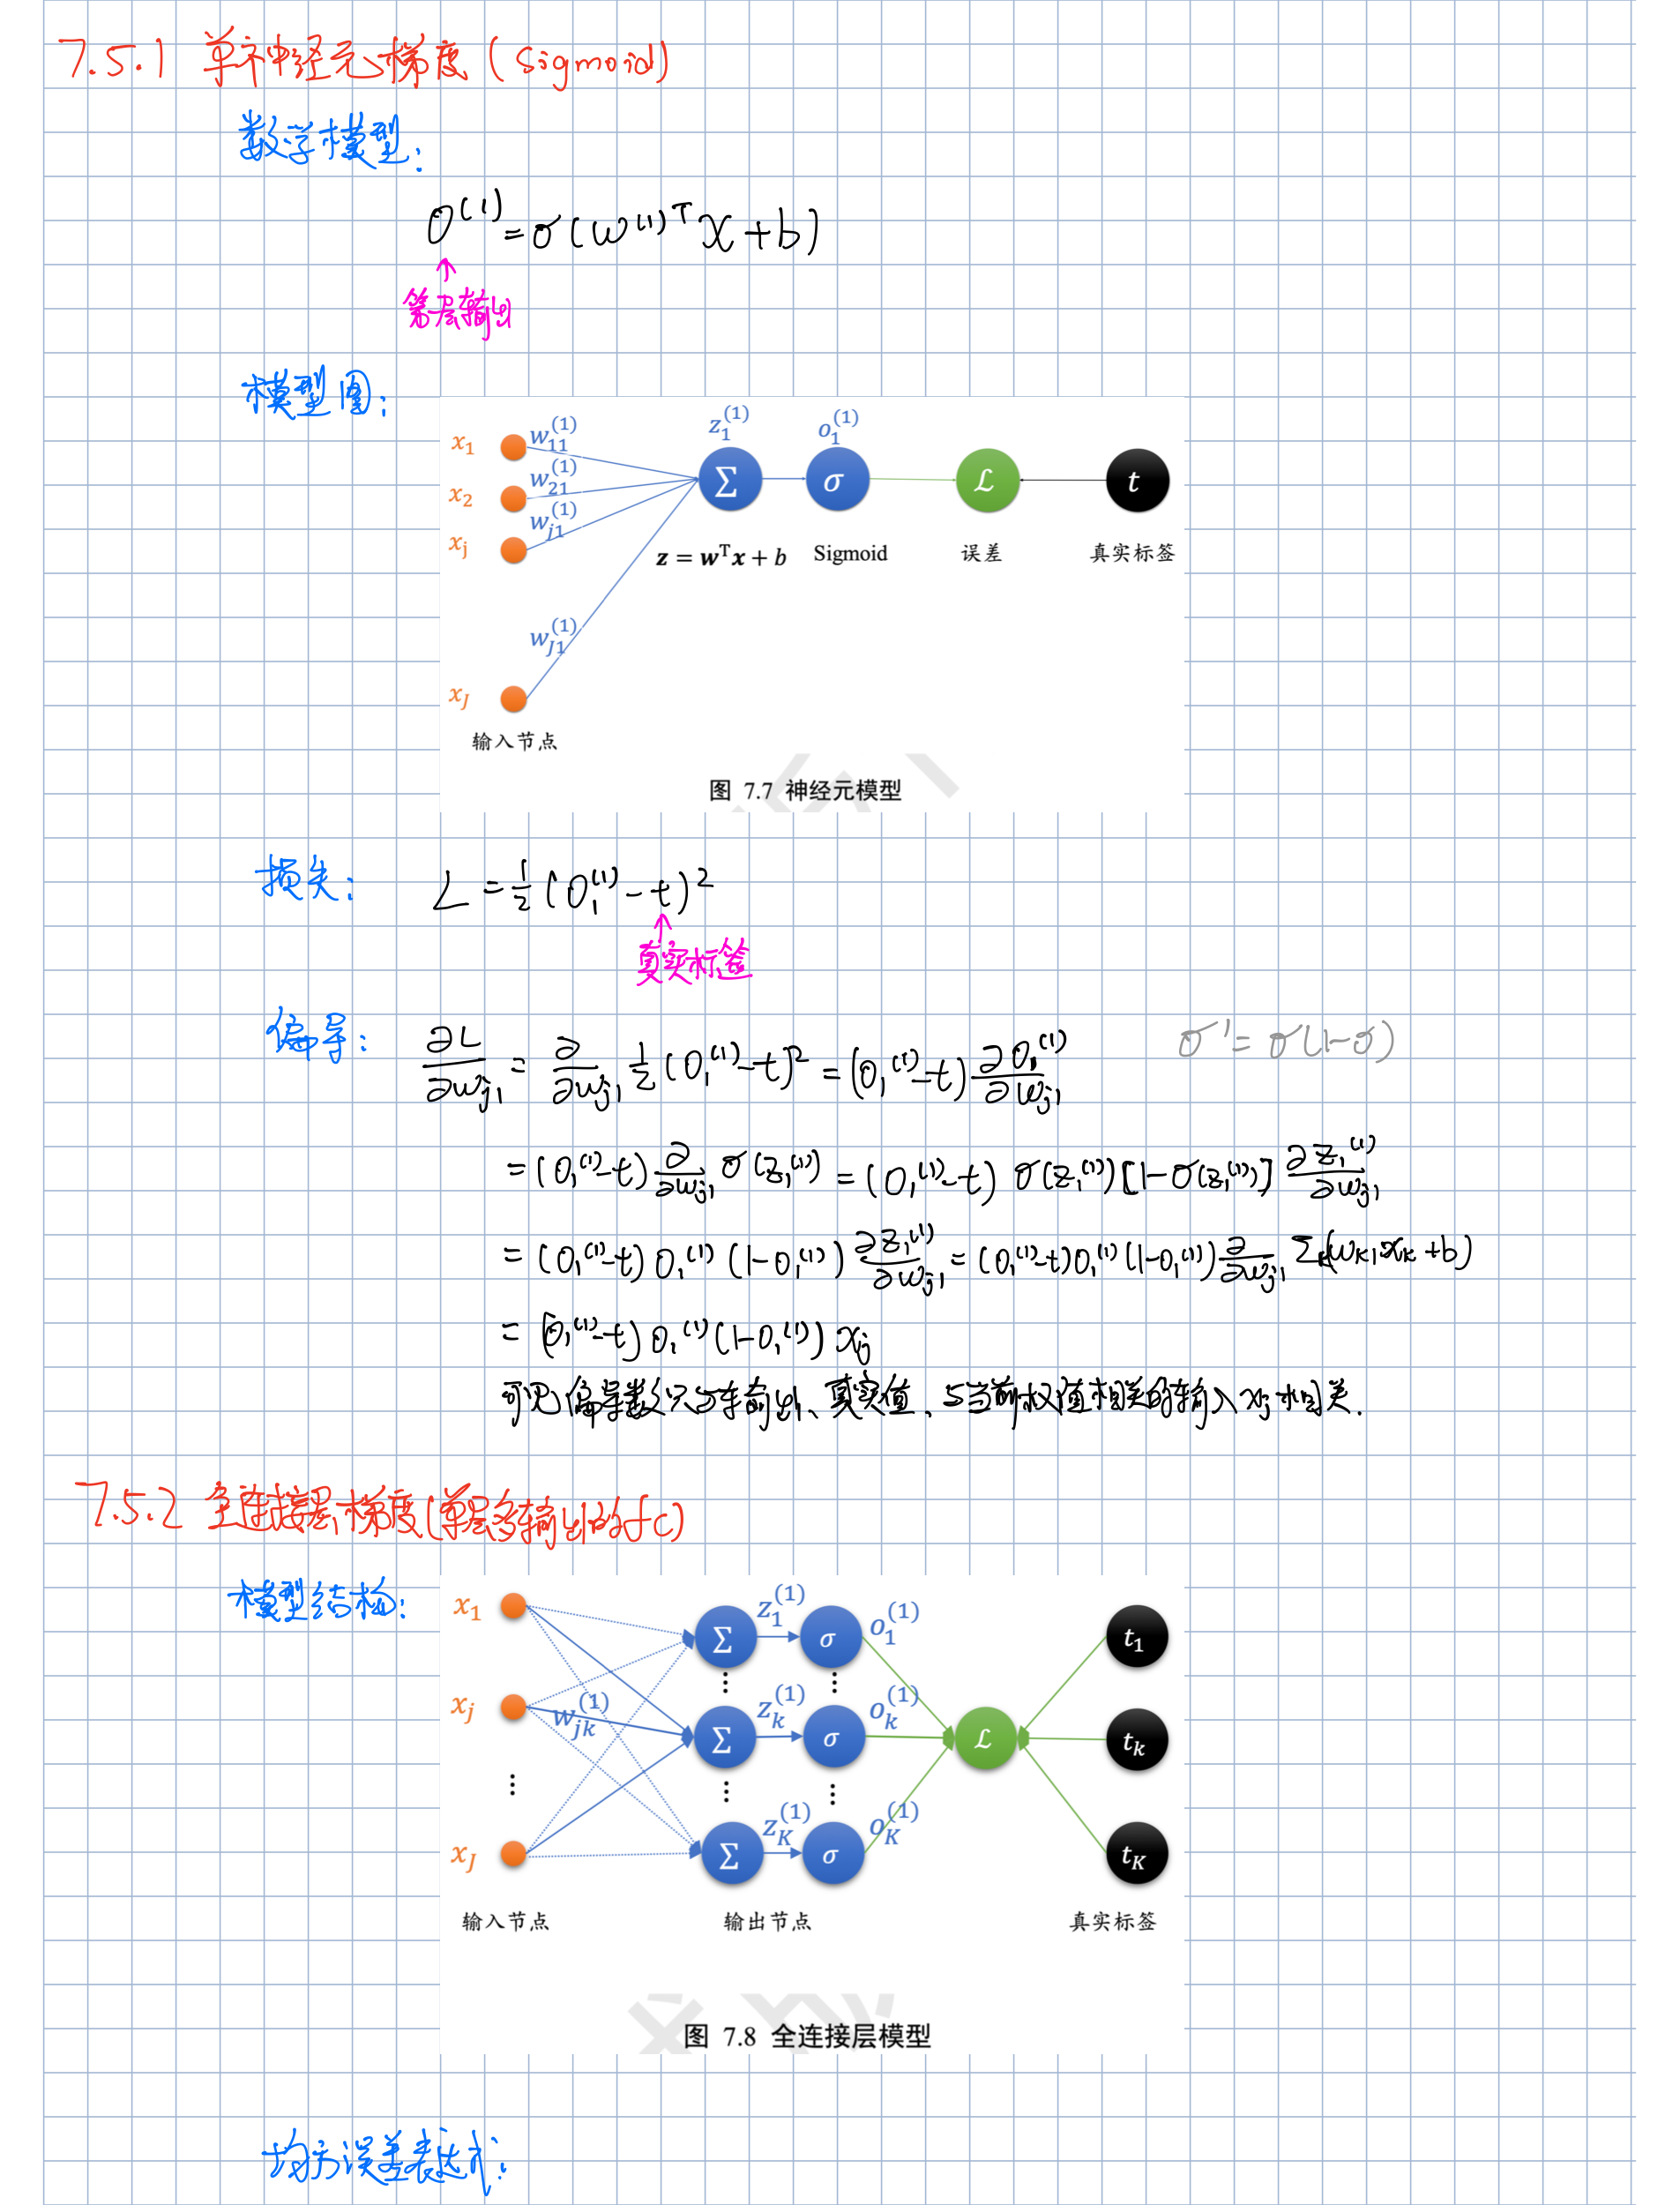 7.5.1 单神经元梯度(Sigmoid)
数学模型:
O^(1) = σ(w^(1)T x + b)
↑
第一层输出
模型图:
x_1 w_11^(1) z_1^(1) o_1^(1)
x_2 w_21^(1) Σ σ ℒ t
x_j w_j1^(1)
z = w^T x + b Sigmoid 误差 真实标签
w_J1^(1)
x_J
输入节点
图 7.7 神经元模型
损失: L = 1/2 (O_1^(1) - t)^2
↑
真实标签
偏导: ∂L/∂w_j1 = ∂/∂w_j1 1/2 (O_1^(1) - t)^2 = (O_1^(1) - t) ∂O_1^(1)/∂w_j1 σ' = σ(1-σ)
= (O_1^(1) - t) ∂/∂w_j1 σ(z_1^(1)) = (O_1^(1) - t) σ(z_1^(1)) [1 - σ(z_1^(1))] ∂z_1^(1)/∂w_j1
= (O_1^(1) - t) O_1^(1) (1 - O_1^(1)) ∂z_1^(1)/∂w_j1 = (O_1^(1) - t) O_1^(1) (1 - O_1^(1)) ∂/∂w_j1 Σ(w_k1 x_k + b)
= (O_1^(1) - t) O_1^(1) (1 - O_1^(1)) x_j
可见偏导数只与输出、真实值、与当前权值相关的输入x_j相关.
7.5.2 全连接层梯度(单层多输出的fc)
模型结构:
x_1 Σ z_1^(1) σ o_1^(1) t_1
x_j w_jk^(1) Σ z_k^(1) σ o_k^(1) ℒ t_k
x_J Σ z_K^(1) σ o_K^(1) t_K
输入节点 输出节点 真实标签
图 7.8 全连接层模型
均方误差表达式: